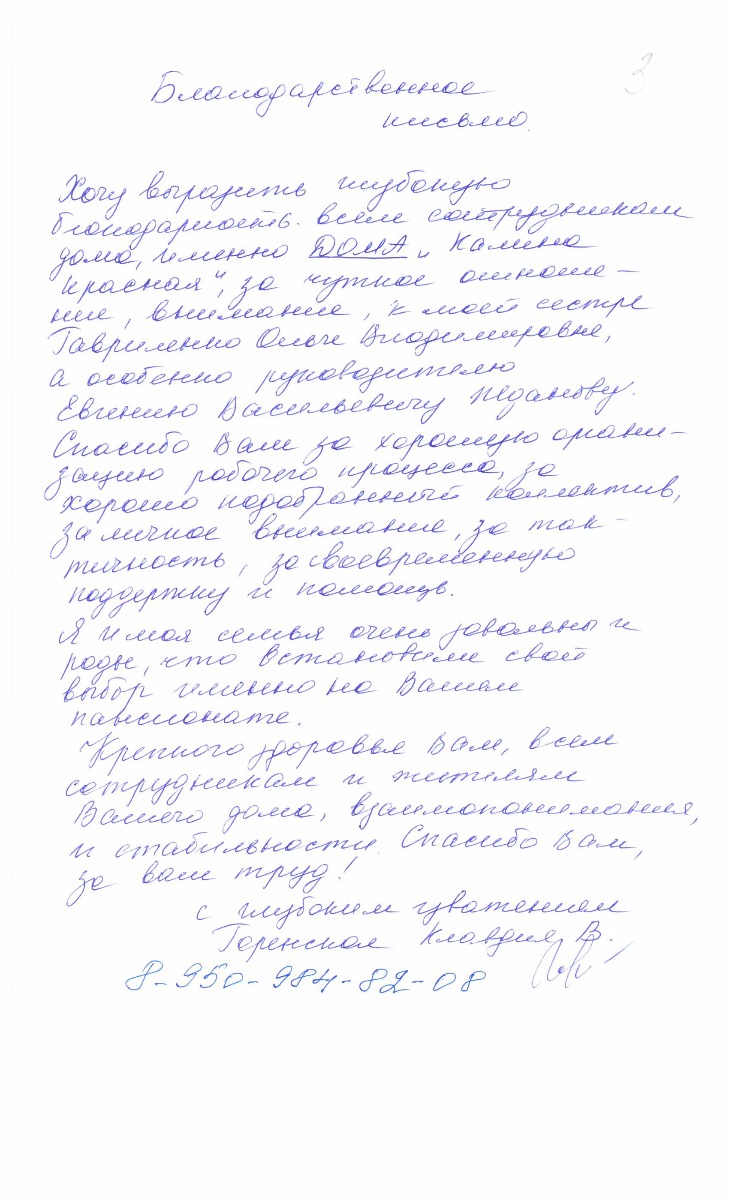 3
Благодарственное
письмо.
Хочу выразить глубокую
благодарность всем сотрудникам
дома, именно ДОМА „Калина
красная", за чуткое отноше-
ние, внимание, к моей сестре
Гавриленко Ольге Владимировне,
а особенно руководителю
Евгению Васильевичу Жданову.
Спасибо Вам за хорошую органи-
зацию рабочего процесса, за
хорошо подобранный коллектив,
за личное внимание, за так-
тичность, за своевременную
поддержку и помощь.
Я и моя семья очень довольны и
рады, что остановили свой
выбор именно на Вашем
пансионате.
Крепкого здоровья Вам, всем
сотрудникам и жителям
Вашего дома, взаимопонимания,
и стабильности. Спасибо Вам,
за ваш труд!
с глубоким уважением
Клавдия В.
8-950-984-82-08